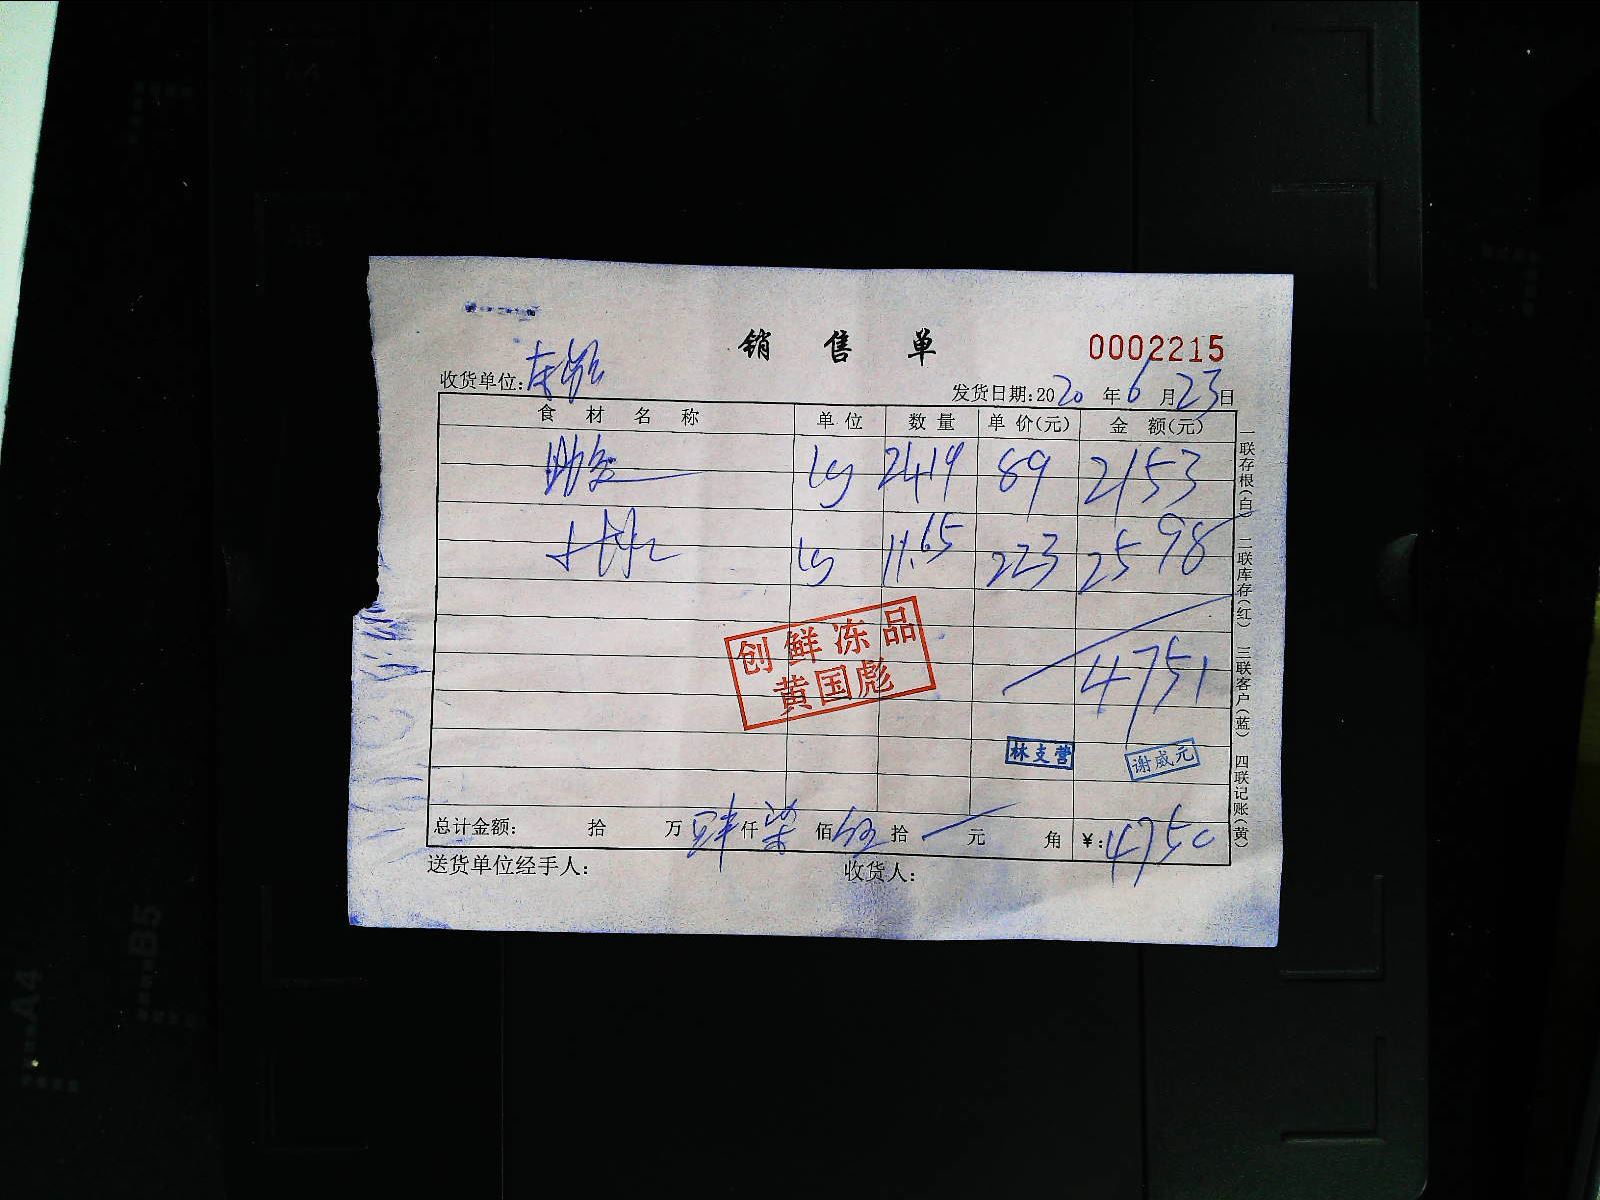 销售单 0002215
收货单位: 发货日期:2020年6月23日
食材名称 单位 数量 单价(元) 金额(元)
kg 24.19 89 2153
kg 11.65 223 2598
4751
创鲜冻品
黄国彪
林支营 谢威元
总计金额: 拾 万 肆 仟 柒 佰 伍 拾 元 角 ¥:4750
送货单位经手人: 收货人:
一联存根(白) 二联库存(红) 三联客户(蓝) 四联记账(黄)